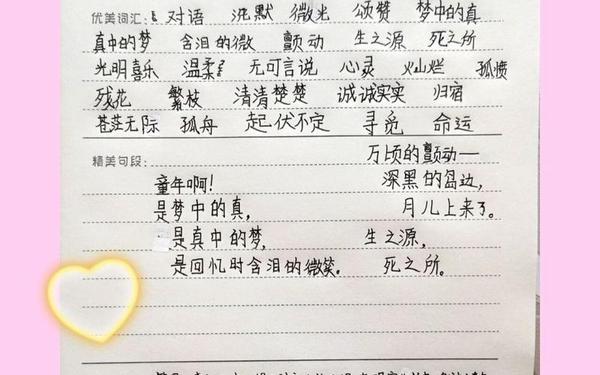 优美词汇: 对语 沉默 微光 颂赞 梦中的真
真中的梦 含泪的微 颤动 生之源 死之所
光明喜乐 温柔 无可言说 心灵 灿烂 孤愤
残花 繁枝 清清楚楚 诚诚实实 归宿
苍茫无际 孤舟 起伏不定 寻觅 命运
精美句段:
童年啊!
是梦中的真,
是真中的梦,
是回忆时含泪的微笑。
万顷的颤动一
深黑的岛边,
月儿上来了。
生之源,
死之所。